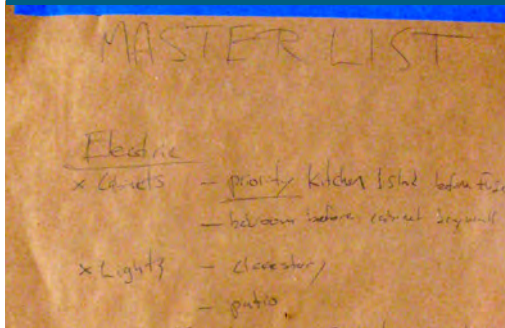 MASTER LIST
Electric
x - priority Kitchen Island before
- bedroom before cabinet drywall
x Lights - clerestory
- patio